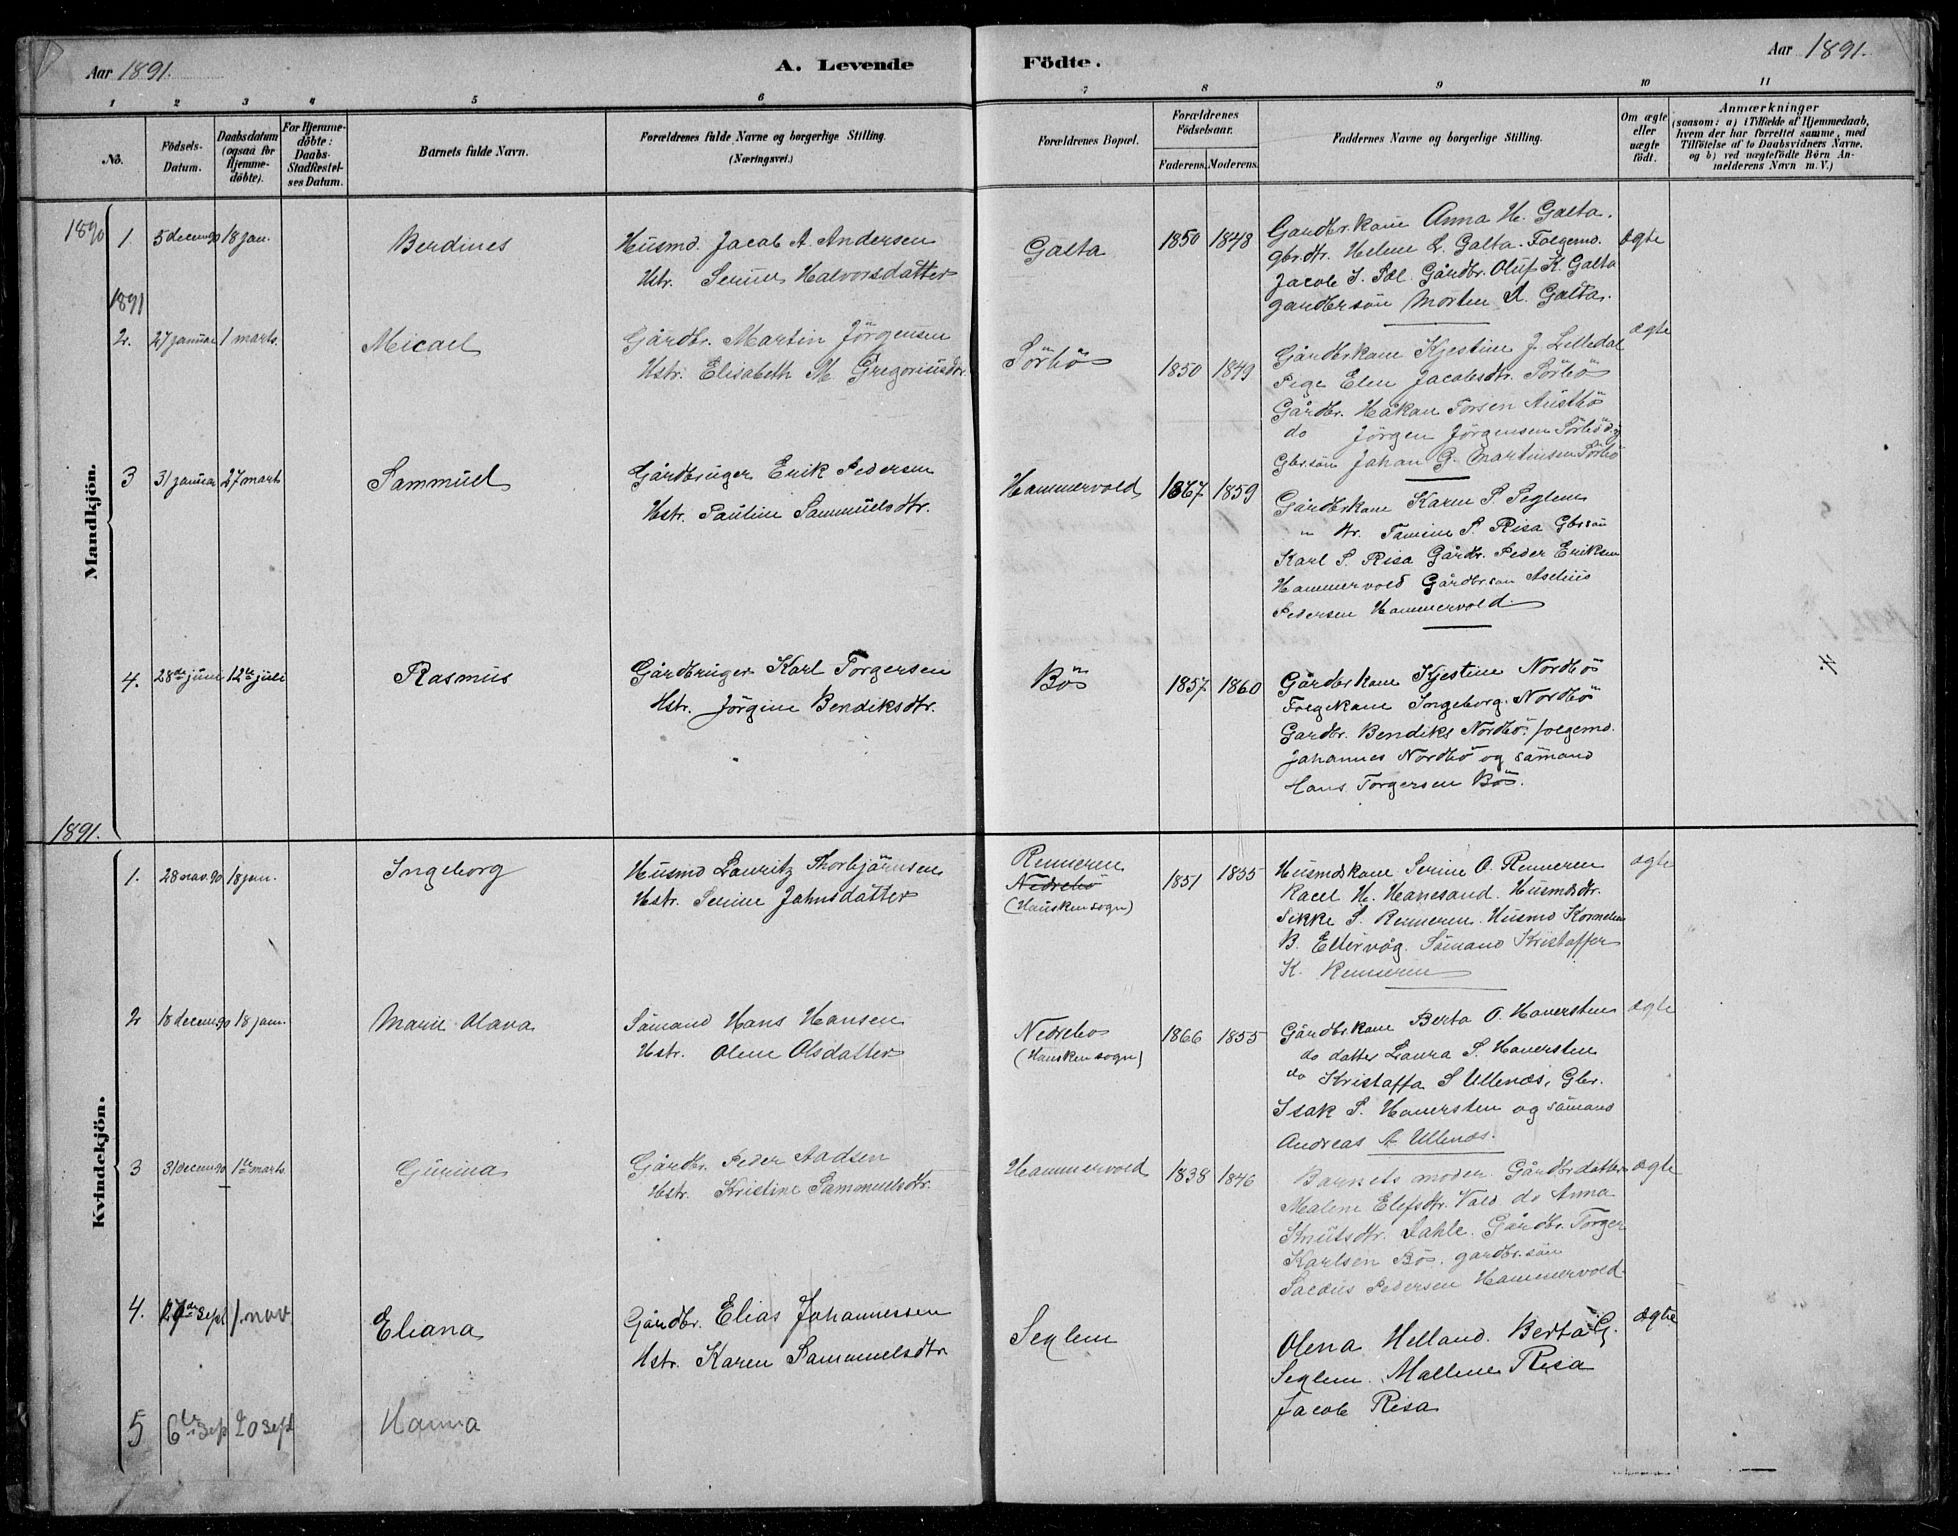 Aar 1891.
A. Levende Födte.
Aar 1891.
1 2 3 4 5 6 7 8 9 10 11
No.
Födsels-Datum.
Daabsdatum (ogsaa for Hjemme-döbte).
For Hjemme-döbte: Daabs-Stadfæstel-ses Datum.
Barnets fulde Navn.
Forældrenes fulde Navne og borgerlige Stilling.
(Næringsvei.)
Forældrenes Bopæl.
Forældrenes Födselsaar.
Faderens. Moderens.
Faddernes Navne og borgerlige Stilling.
Om ægte eller uægte födt.
Anmærkninger
(saasom: a) i Tilfælde af Hjemmedaab,
hvem der har forrettet samme, med
Tilföielse af to Daabsvidners Navne,
og b) ved uægtefödte Börn An-
melderens Navn m. V.)
Mandkjön.
1890
1 5 decem 90 18 jan. Berdines
Husmd. Jacob A. Andersen
Hstr. Serine Halvorsdatter
Galta 1850 1848
Gardbrkane Anna H. Galta.
gbrdtr. Helene L. Galta. Folgemd.
Jacob I. Gårdbr. Oluf K. Galta
gardbrsön Morten L. Galta.
ægte
1891
2. 27 januar 1 marts. Micael
Gårdbr. Martin Jörgensen
Hstr. Elisabeth M Gregoriusdtr.
Sörbö 1850 1849
Gårdbrkane Kjestine J. Lilledal
Pige Elen Jacobsdtr. Sörbö
Gårdbr. Håkan Torsen Austbö
do Jörgen Jörgensen Sörbö og
Gbrsön Johan G. Martinsen Sörbö
ægte
3 31 januar 27 marts Sammuel
Gårdbruger Erik Pedersen
Hstr. Pauline Sammuelsdtr.
Hammervold 1867 1859
Gårdbrkane Karen S. Seglem
" dtr. Tamine S. Risa Gbrsön
Karl S. Risa Gårdbr. Peder Eriksen
Hammervold Gårdbrsön
Pedersen Hammervold.
4. 28de juni 12te juli Rasmus
Gårdbruger Karl Torgersen
Hstr. Jörgine Bendiksdtr.
Bö 1857 1860
Gårdbrkane Kjestine Nordbö
Folgekane Ingeborg. Nordbö
Gardbr. Bendiks Nordbö. folgemd.
Johannes Nordbö og sömand
Hans Torgersen Bö.
4.
1891.
Kvindekjön.
1. 28 nov. 90 18 jan. Ingeborg
Husmd Lauritz Thorbjörnsen
Hstr. Serine Jahnsdatter
Renneren
Nedrebö
(Hausken sogn)
1851 1855
Husmdkane Serine O. Renneren
Racel H. Hanesand. Husmdsdtr.
Sikke S. Renneren. Husmd Kornelius
B. Eltervåg. Sömand Kristaffer
K. Renneren
ægte
2 18 decem 90 18 jan. Marie Olava
Sömand Hans Hansen
Hstr. Olene Olsdatter
Nedrebo
(Hausken sogn)
1866 1855
Gårdbrkane Berta O. Hauersten
do datter Laura S. Hauersten
do Kristaffa S Ullenæs, Gbr.
Isak S. Hauersten og sömand
Andreas A Ullenæs.
ægte
3 31 decem 90 1te marts Gurina
Gårdbr. Peder Aadsen
Hstr. Kristine Sammuelsdtr.
Hammervold 1838 1846
Barnets moder Gårdbrdatter
Malene Elefsdtr. Vald do Anna
Knutsdtr. Dahle. Gårdbr. Torger
Karlsen Bö. gardbr.sön
Pedersen Hammervold
ægte
4. 27de Sept 1. nov Eliana
Gårdbr. Elias Johannessen
Hstr. Karen Sammuelsdtr
Seglem
Olena Helland. Berta G.
Seglem. Mallene Risa
Jacob Risa
ægte
5 6te Sept 20 sept Hanna